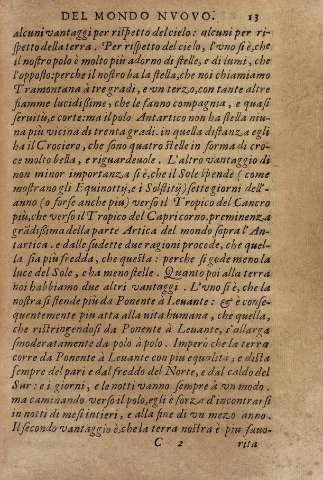 DEL MONDO NVOVO. 13
alcuni vantaggi per rispetto del cielo: alcuni per ri-
spetto della terra. Per rispetto del cielo, l'vno si è, che
il nostro polo è molto più adorno di stelle, e di lumi, che
l'opposto: perche il nostro ha la stella, che noi chiamiamo
Tramontana à tre gradi, e vn terzo, con tante altre
fiamme lucidissime, che le fanno compagnia, e quasi
seruitù, e corte: ma il polo Antartico non ha stella niu-
na piu vicina di trenta gradi. in quella distanza egli
ha il Crociero, che sono quatro stelle in forma di cro-
ce molto bella, e riguardeuole. L'altro vantaggio di
non minor importanza si è, che il Sole spende (come
mostrano gli Equinottij, e i Solstitij) sette giorni dell'-
anno (o forse anche piu) verso il Tropico del Cancro
più, che verso il Tropico del Capricorno. preminenza
grãdissima della parte Artica del mondo sopra l'An-
tartica. e dalle sudette due ragioni procede, che quel-
la sia piu fredda, che questa: perche si gode meno la
luce del Sole, e ha meno stelle. Quanto poi alla terra
noi habbiamo due altri vantaggi. L'vno si è, che la
nostra si stende piu da Ponente à Leuante: & è conse-
quentemente piu atta alla vita humana, che quella,
che ristringendosi da Ponente à Leuante, s'allarga
smoderatamente da polo à polo. Imperò che la terra
corre da Ponente à Leuante con piu equalita, e dista
sempre del pari e dal freddo del Norte, e dal caldo del
Sur: e i giorni, e le notti vanno sempre à vn modo.
ma caminando verso il polo, egli è forza d'incontrarsi
in notti di mesi intieri, e alla fine di vn mezo anno.
Il secondo vantaggio è, che la terra nostra è piu fauo-
C 2 rita